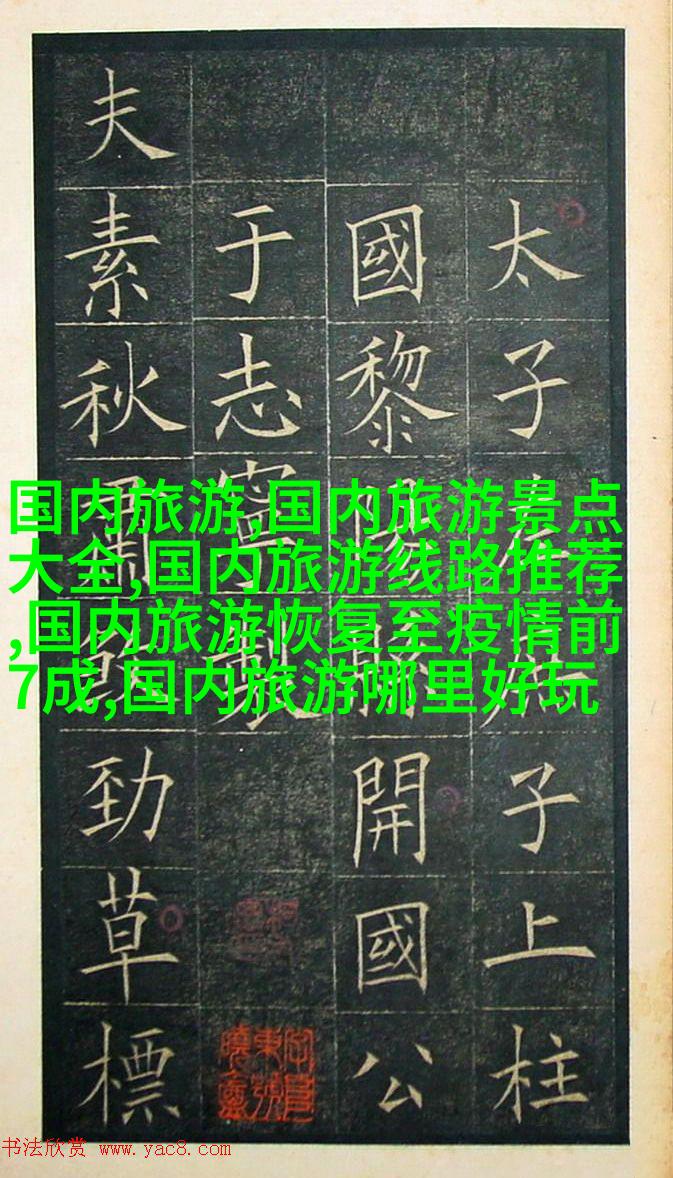 太子左庶子上柱
國黎陽縣開國公
于志寧製
夫素秋肅勁草標
国内旅游,国内旅游景点
大全,国内旅游线路推荐
,国内旅游恢复至疫情前
7成,国内旅游哪里好玩
书法欣赏 www.yac8.com